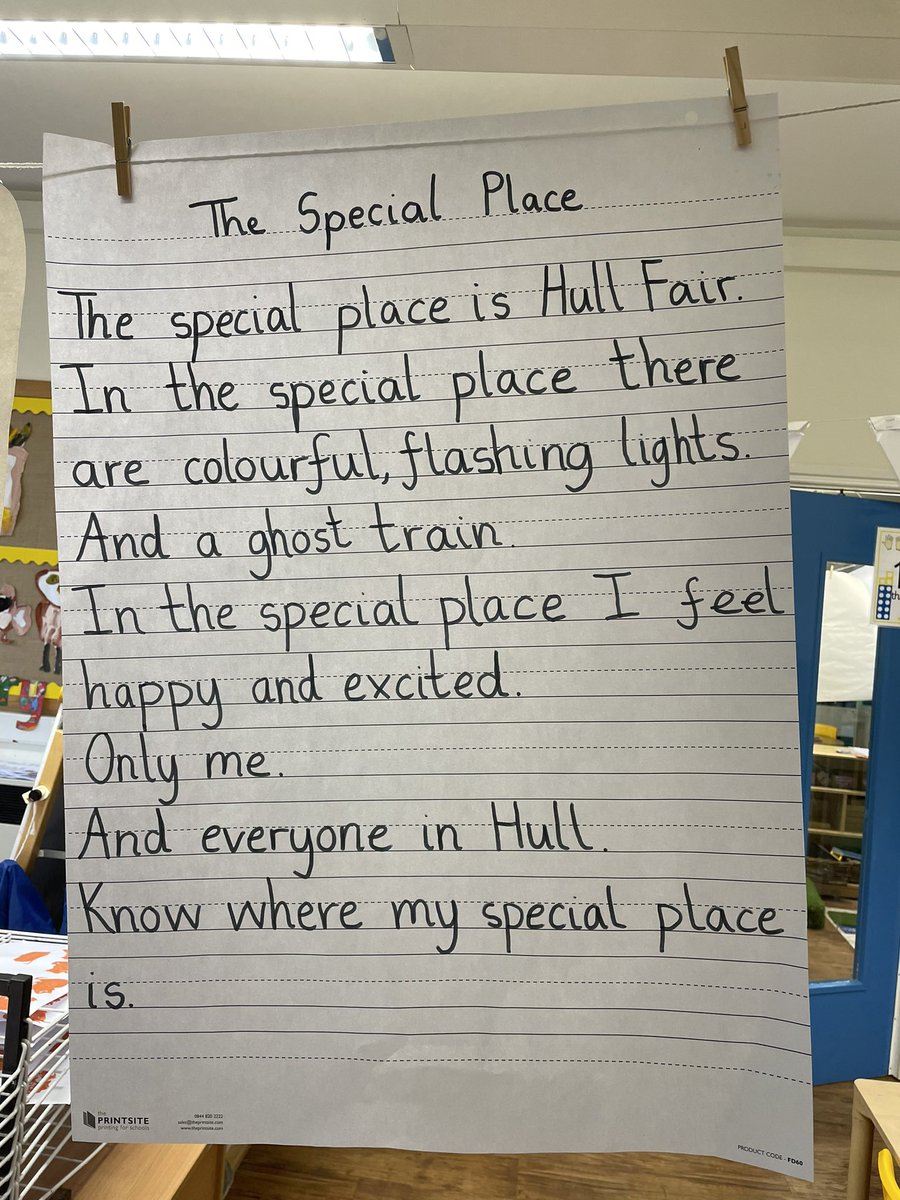 The Special Place
The special place is Hull Fair.
In the special place there
are colourful, flashing lights.
And a ghost train.
In the special place I feel
happy and excited.
Only me.
And everyone in Hull.
Know where my special place
is.
the
PRINTSITE
printing for schools
0844 820 2222
sales@theprintsite.com
www.theprintsite.com
PRODUCT CODE - FD60